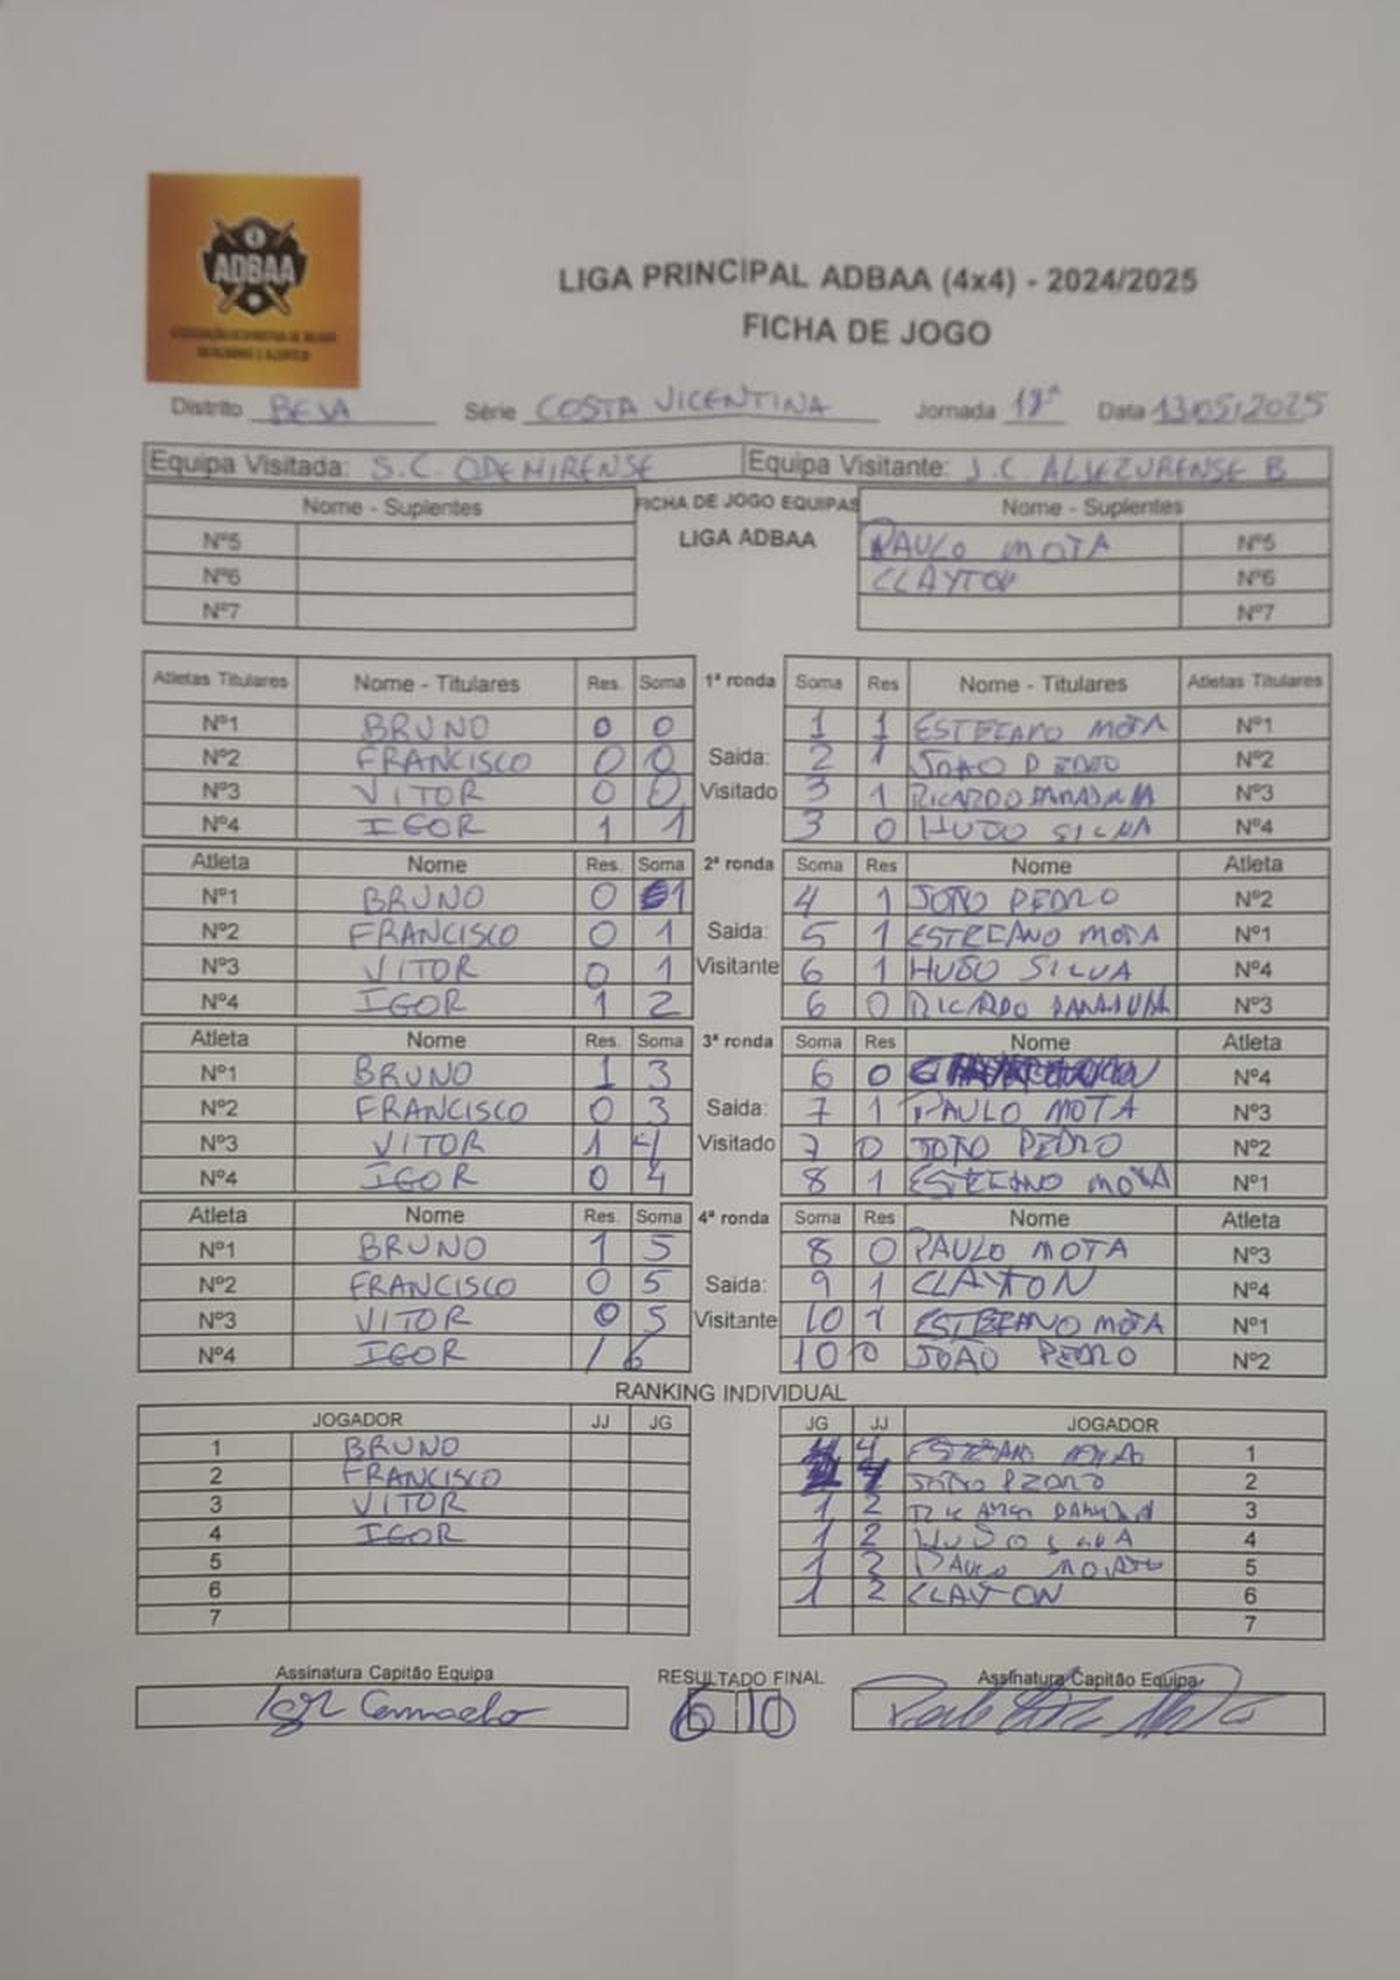 ADBAA
LIGA PRINCIPAL ADBAA (4x4) - 2024/2025
FICHA DE JOGO
Distrito BEJA Série COSTA VICENTINA Jornada 18ª Data 13/05/2025
Equipa Visitada: S.C. ODEMIRENSE Equipa Visitante: J.C. ALJEZURENSE B
Nome - Suplentes FICHA DE JOGO EQUIPAS Nome - Suplentes
Nº5 LIGA ADBAA PAULO MOTA Nº5
Nº6 CLAYTON Nº6
Nº7 Nº7
Atletas Titulares Nome - Titulares Res. Soma 1ª ronda Soma Res Nome - Titulares Atletas Titulares
Nº1 BRUNO 0 0 1 1 ESTEFANO MOTA Nº1
Nº2 FRANCISCO 0 0 Saida: 2 1 JOAO PEDRO Nº2
Nº3 VITOR 0 0 Visitado 3 1 RICARDO Nº3
Nº4 IGOR 1 1 3 0 HUGO SILVA Nº4
Atleta Nome Res. Soma 2ª ronda Soma Res Nome Atleta
Nº1 BRUNO 0 1 4 1 JOÃO PEDRO Nº2
Nº2 FRANCISCO 0 1 Saida: 5 1 ESTEFANO MOTA Nº1
Nº3 VITOR 0 1 Visitante 6 1 HUGO SILVA Nº4
Nº4 IGOR 1 2 6 0 RICARDO Nº3
Atleta Nome Res. Soma 3ª ronda Soma Res Nome Atleta
Nº1 BRUNO 1 3 6 0 Nº4
Nº2 FRANCISCO 0 3 Saida: 7 1 PAULO MOTA Nº3
Nº3 VITOR 1 4 Visitado 7 0 JOÃO PEDRO Nº2
Nº4 IGOR 0 4 8 1 ESTEFANO MOTA Nº1
Atleta Nome Res. Soma 4ª ronda Soma Res Nome Atleta
Nº1 BRUNO 1 5 8 0 PAULO MOTA Nº3
Nº2 FRANCISCO 0 5 Saida: 9 1 CLAYTON Nº4
Nº3 VITOR 0 5 Visitante 10 1 ESTEFANO MOTA Nº1
Nº4 IGOR 1 6 10 0 JOÃO PEDRO Nº2
RANKING INDIVIDUAL
JOGADOR JJ JG JG JJ JOGADOR
1 BRUNO 4 4 ESTEFANO MOTA 1
2 FRANCISCO 4 JOÃO PEDRO 2
3 VITOR 1 2 3
4 IGOR 1 2 HUGO SILVA 4
5 1 2 PAULO 5
6 1 2 CLAYTON 6
7 7
Assinatura Capitão Equipa RESULTADO FINAL Assinatura Capitão Equipa
Igor Camacho 6 10